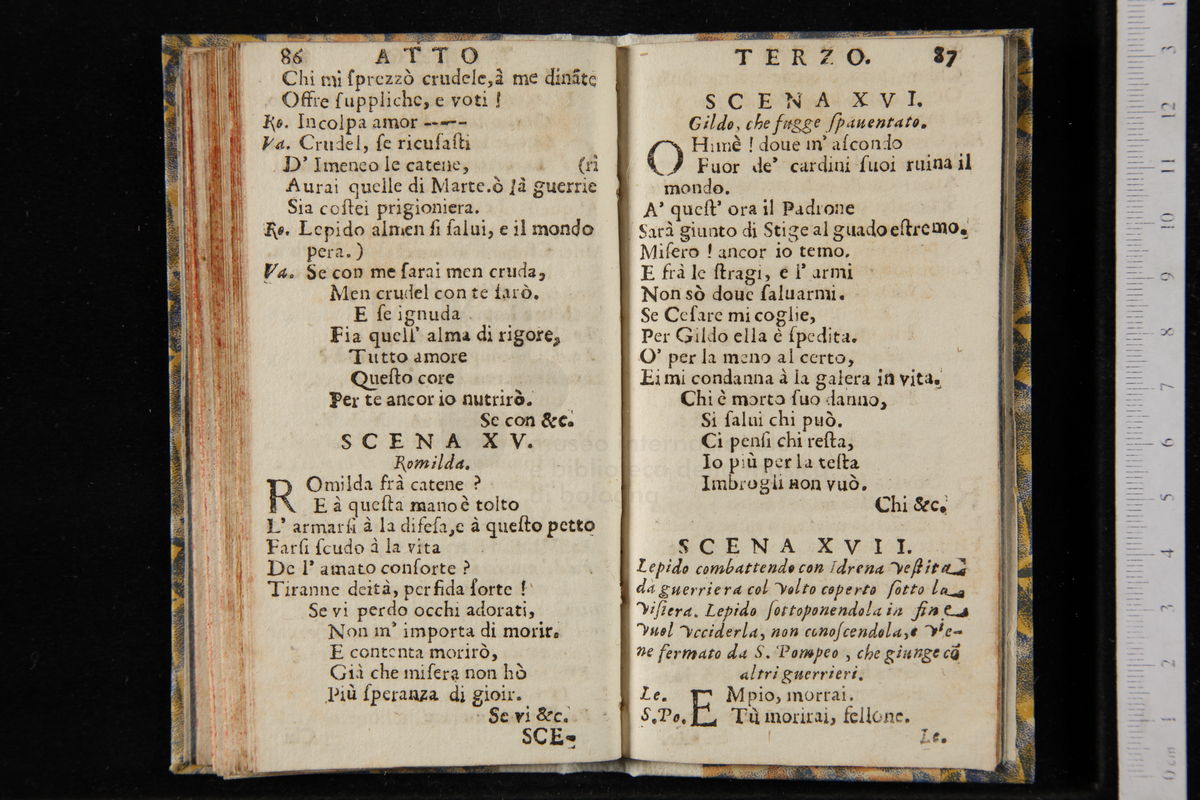 86 ATTO
Chi mi ſprezzò crudele,à me dināte
Offre ſuppliche, e voti !
Ro. Incolpa amor ----
Va. Crudel, ſe ricuſaſti
D' Imeneo le catene, (ri
Aurai quelle di Marte.ò là guerrie
Sia coſtei prigioniera.
Ro. Lepido almen ſi ſalui, e il mondo
pera. )
Va. Se con me ſarai men cruda,
Men crudel con te ſarò.
E ſe ignuda
Fia quell' alma di rigore,
Tutto amore
Queſto core
Per te ancor io nutrirò.
Se con &c.
SCENA XV.
Romilda.
ROmilda frà catene ?
E à queſta mano è tolto
L' armarſi à la difeſa,e à queſto petto
Farſi ſcudo à la vita
De l' amato conſorte ?
Tiranne deità, perfida ſorte !
Se vi perdo occhi adorati,
Non m' importa di morir.
E contenta morirò,
Già che miſera non hò
Più ſperanza di gioir.
Se vi &c.
SCE-
TERZO. 87
SCENA XVI.
Gildo, che fugge ſpauentato.
OHimè ! doue m' aſcondo
Fuor de' cardini ſuoi ruina il
mondo.
A' queſt' ora il Padrone
Sarà giunto di Stige al guado eſtremo.
Miſero ! ancor io temo.
E frà le ſtragi, e l' armi
Non sò doue ſaluarmi.
Se Ceſare mi coglie,
Per Gildo ella è ſpedita.
O' per la meno al certo,
Ei mi condanna à la galera in vita.
Chi è morto ſuo danno,
Si ſalui chi può.
Ci penſi chi reſta,
Io più per la teſta
Imbrogli non vuò.
Chi &c.
SCENA XVII.
Lepido combattendo con Idrena veſtita
da guerriera col volto coperto ſotto la
viſiera. Lepido ſottoponendola in fine
vuol vcciderla, non conoſcendola, e vie-
ne fermato da S. Pompeo , che giunge cō
altri guerrieri.
Le. EMpio, morrai.
S.Po. Tù morirai, fellone.
Le.
0 cm 1 2 3 4 5 6 7 8 9 10 11 12 3